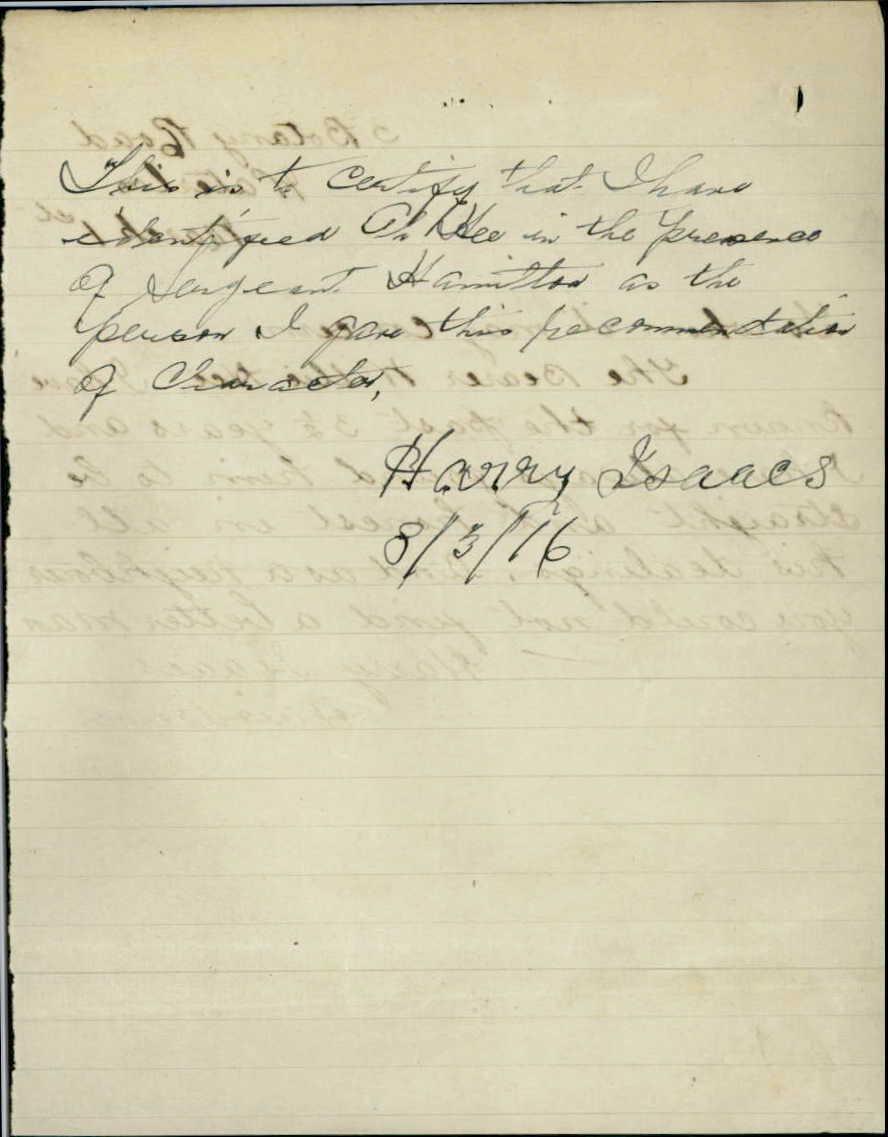 This is to Certify that I have
identifyied Ah Kee in the presence
of Sergeant Hamilton as the
person I gave this recommendation
of Character,
Harry Isaacs
8/3/16